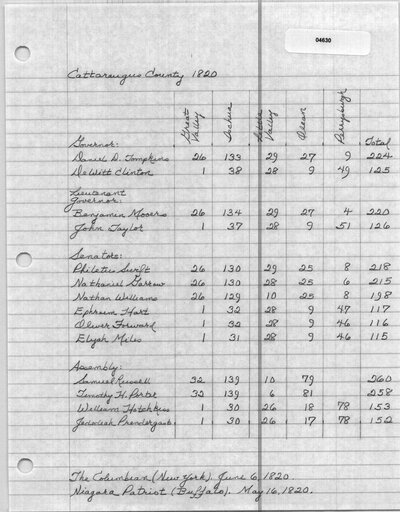 04630
Cattaraugus County 1820
Great Valley Ischua Little Valley Olean Perrysburgh Total
Governor:
Daniel D. Tompkins 26 133 29 27 9 224
DeWitt Clinton 1 38 28 9 49 125
Lieutenant
Governor:
Benjamin Mooers 26 134 29 27 4 220
John Taylor 1 37 28 9 51 126
Senators:
Philetus Swift 26 130 29 25 8 218
Nathaniel Garrow 26 130 28 25 6 215
Nathan Williams 26 129 10 25 8 198
Ephraim Hart 1 32 28 9 47 117
Oliver Forward 1 32 28 9 46 116
Elijah Miles 1 31 28 9 46 115
Assembly:
Samuel Russell 32 139 10 79 260
Timothy H. Porter 32 139 6 81 258
William Hotchkiss 1 30 26 18 78 153
Jedediah Prendergast 1 30 26 17 78 152
The Columbian (New York). June 6, 1820.
Niagara Patriot (Buffalo). May 16, 1820.